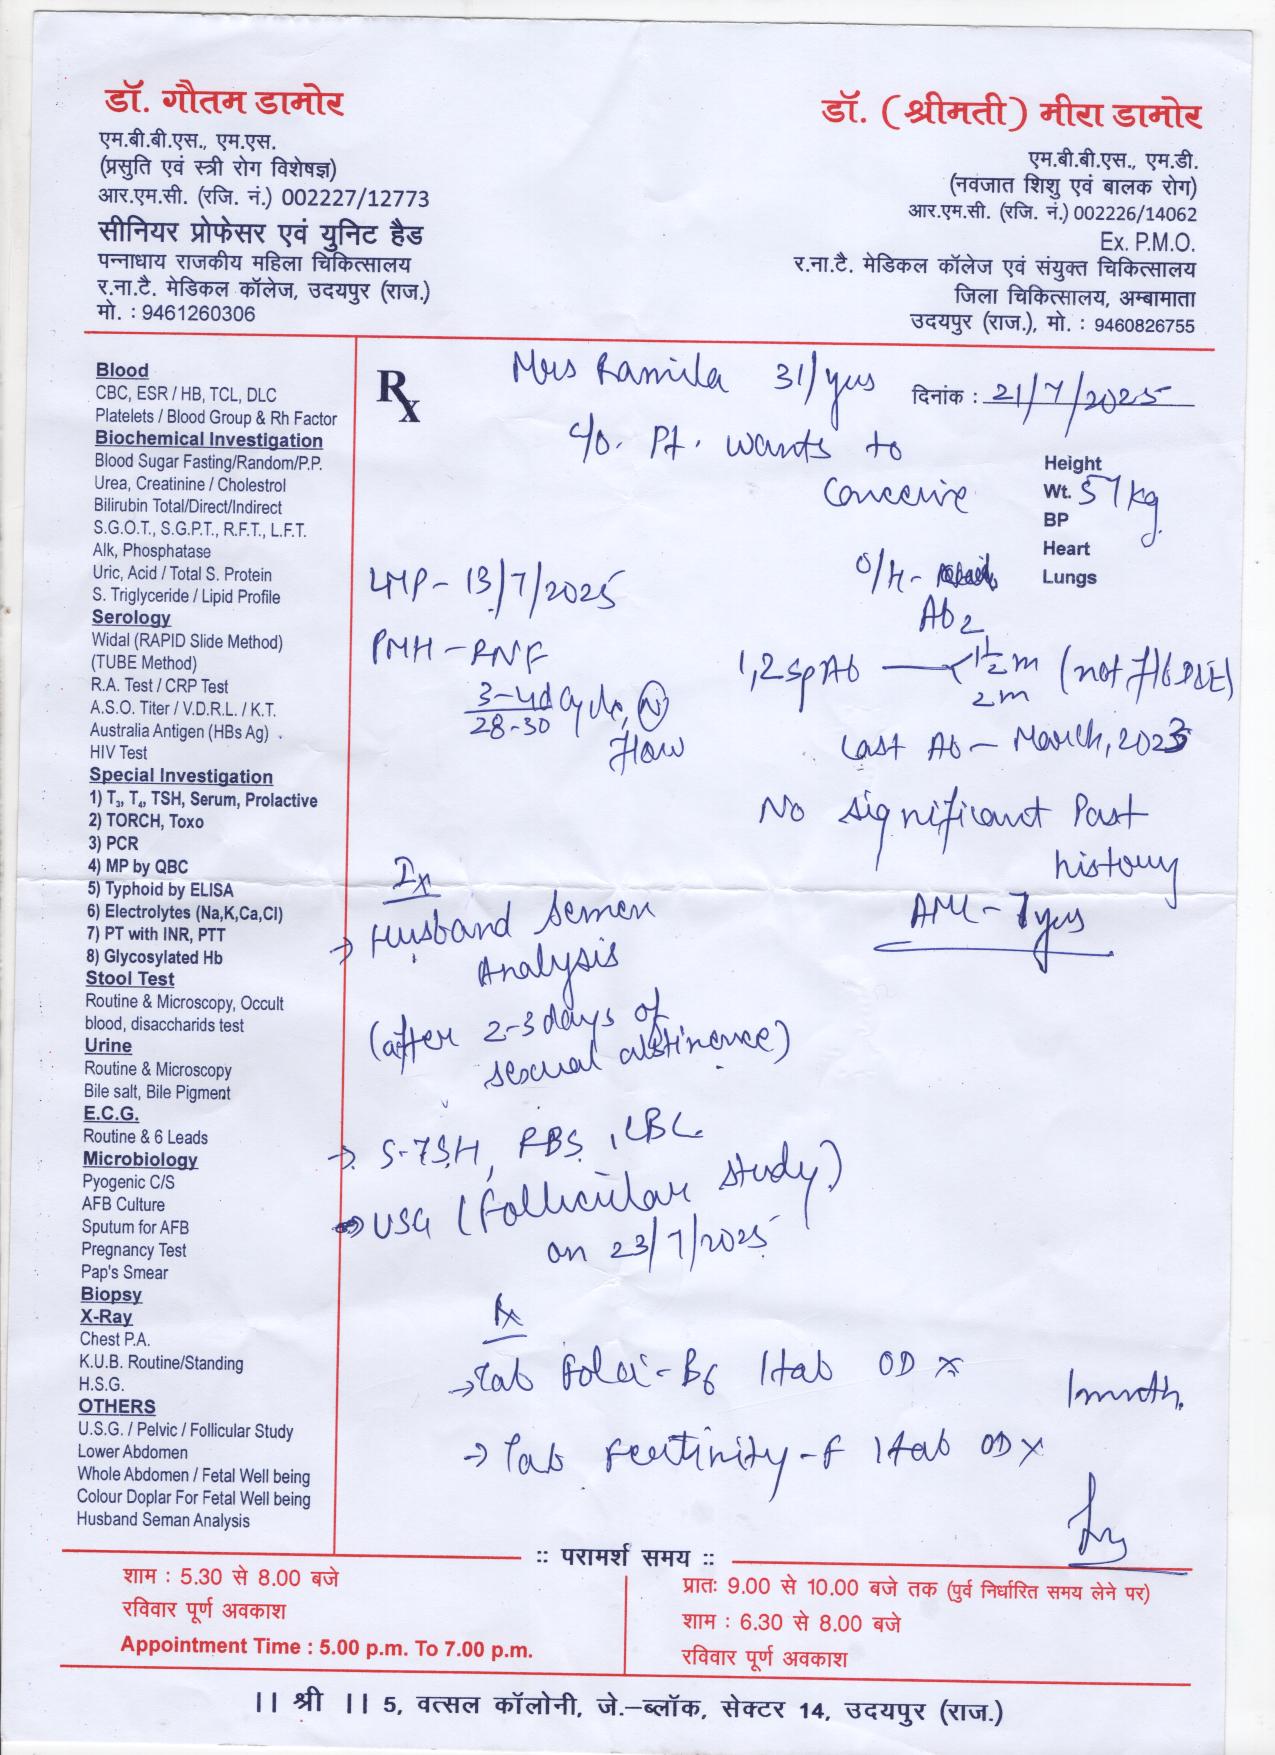 डॉ. गौतम डामोर
एम.बी.बी.एस., एम.एस.
(प्रसुति एवं स्त्री रोग विशेषज्ञ)
आर.एम.सी. (रजि. नं.) 002227/12773
सीनियर प्रोफेसर एवं युनिट हैड
पन्नाधाय राजकीय महिला चिकित्सालय
र.ना.टै. मेडिकल कॉलेज, उदयपुर (राज.)
मो. : 9461260306
डॉ. (श्रीमती) मीरा डामोर
एम.बी.बी.एस., एम.डी.
(नवजात शिशु एवं बालक रोग)
आर.एम.सी. (रजि. नं.) 002226/14062
Ex. P.M.O.
र.ना.टै. मेडिकल कॉलेज एवं संयुक्त चिकित्सालय
जिला चिकित्सालय, अम्बामाता
उदयपुर (राज.), मो. : 9460826755
Blood
CBC, ESR / HB, TCL, DLC
Platelets / Blood Group & Rh Factor
Biochemical Investigation
Blood Sugar Fasting/Random/P.P.
Urea, Creatinine / Cholestrol
Bilirubin Total/Direct/Indirect
S.G.O.T., S.G.P.T., R.F.T., L.F.T.
Alk, Phosphatase
Uric, Acid / Total S. Protein
S. Triglyceride / Lipid Profile
Serology
Widal (RAPID Slide Method)
(TUBE Method)
R.A. Test / CRP Test
A.S.O. Titer / V.D.R.L. / K.T.
Australia Antigen (HBs Ag) .
HIV Test
Special Investigation
1) T3, T4, TSH, Serum, Prolactive
2) TORCH, Toxo
3) PCR
4) MP by QBC
5) Typhoid by ELISA
6) Electrolytes (Na,K,Ca,Cl)
7) PT with INR, PTT
8) Glycosylated Hb
Stool Test
Routine & Microscopy, Occult
blood, disaccharids test
Urine
Routine & Microscopy
Bile salt, Bile Pigment
E.C.G.
Routine & 6 Leads
Microbiology
Pyogenic C/S
AFB Culture
Sputum for AFB
Pregnancy Test
Pap's Smear
Biopsy
X-Ray
Chest P.A.
K.U.B. Routine/Standing
H.S.G.
OTHERS
U.S.G. / Pelvic / Follicular Study
Lower Abdomen
Whole Abdomen / Fetal Well being
Colour Doplar For Fetal Well being
Husband Seman Analysis
Rx
Mrs Ramila 31/yrs
दिनांक : 21/7/2025
c/o. Pt. wants to
conceive
Height
Wt. 57kg
BP
Heart
Lungs
LMP - 13/7/2025
O/H -
Ab2
PMH - RNF
3-4d cycle, (N)
28-30
flow
1,2 sp Ab — 1½m (not f/b D&E)
2m
Last Ab - March, 2023
No significant Past
history
AML - 7yrs
Ix
→ Husband Semen
Analysis
(after 2-3 days of
sexual abstinence)
→ S-TSH, RBS, CBC
→ USG (Follicular study)
on 23/7/2025
Rx
→ Tab Folci-B6 1tab OD x
1month.
→ Tab Fertinity-F 1tab OD x
:: परामर्श समय ::
शाम : 5.30 से 8.00 बजे
रविवार पूर्ण अवकाश
Appointment Time : 5.00 p.m. To 7.00 p.m.
प्रातः 9.00 से 10.00 बजे तक (पुर्व निर्धारित समय लेने पर)
शाम : 6.30 से 8.00 बजे
रविवार पूर्ण अवकाश
|| श्री || 5, वत्सल कॉलोनी, जे.-ब्लॉक, सेक्टर 14, उदयपुर (राज.)